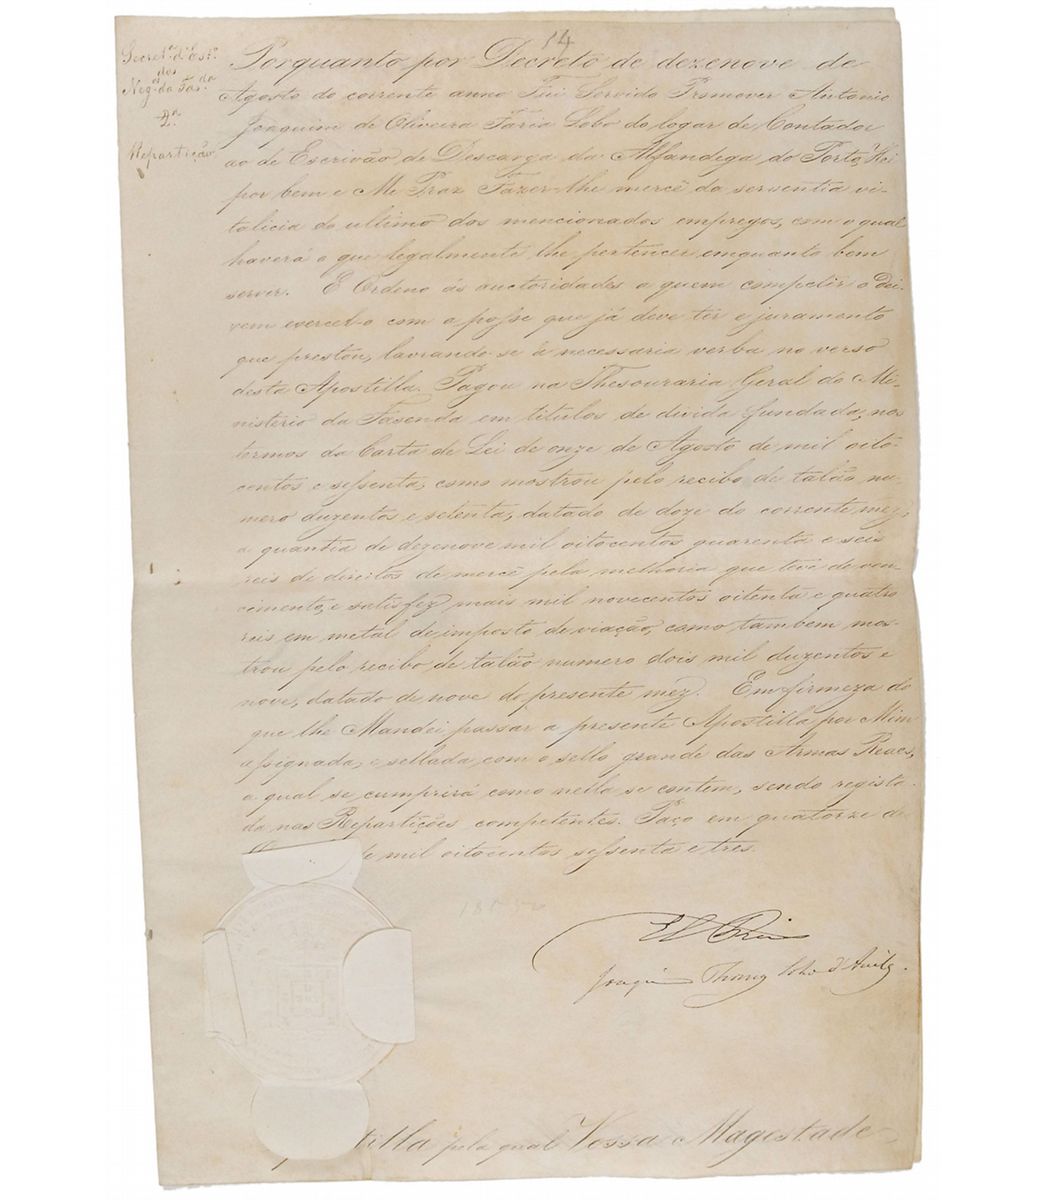 14
Secret.ª d'Est.º
dos
Neg.ᵒˢ da Faz.ᵈᵃ
2.ª
Repartição
Porquanto por Decreto de dezenove de
Agosto do corrente anno Fui Servido Promover Antonio
Joaquim de Oliveira Faria Lobo do logar de Contador
ao de Escrivão de Descarga da Alfandega do Porto, Hei
por bem e Me Praz Fazer-lhe mercê da serventia vi-
talicia do ultimo dos mencionados empregos, com o qual
haverá o que legalmente lhe pertencer emquanto bem
servir. E Ordeno ás auctoridades a quem competir o dei-
xem exercel-o com a posse que já deve ter e juramento
que prestou, lavrando-se a necessaria verba no verso
desta Apostilla. Pagou na Thesouraria Geral do Mi-
nisterio da Fasenda em titulos de divida fundada, nos
termos da Carta de Lei de onze de Agosto de mil oito-
centos e sessenta, como mostrou pelo recibo de talão nu-
mero duzentos e setenta, datado de doze do corrente mez,
a quantia de dezenove mil oitocentos quarenta e seis
reis de direitos de mercê pela melhoria que teve de ven-
cimento, e satisfez mais mil novecentos oitenta e quatro
reis em metal de imposto de viação, como tambem mos-
trou pelo recibo de talão numero dois mil duzentos e
nove, datado de nove do presente mez. Em firmeza do
que lhe Mandei passar a presente Apostilla por Mim
assignada, e sellada com o sello grande das Armas Reaes,
a qual se cumprirá como nella se contem, sendo regista-
da nas Repartições competentes. Paço em quatorze de
de mil oitocentos sessenta e tres.
El Rei
Joaquim Thomaz Lobo d'Avila.
tilla pela qual Vossa Magestade